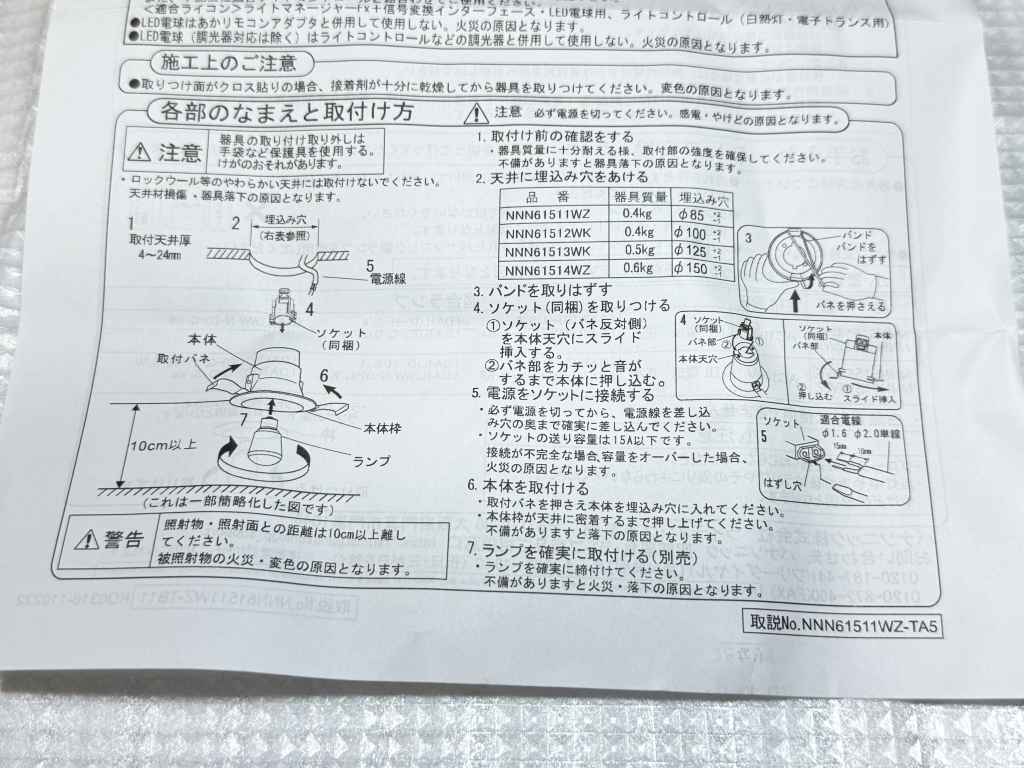 <適合ライコンライトマネージャーFx＋信号変換インターフェース・LED電球用、ライトコントロール（白熱灯・電子トランス用）
●LED電球はあかりモコンアダプタと併用して使用しない。火災の原因となります。
●LED電球（調光器対応は除く）はライトコントロールなどの調光器と併用して使用しない。火災の原因となります。
施工上のご注意
●取りつけ面がクロス貼りの場合、接着剤が十分に乾燥してから器具を取りつけてください。変色の原因となります。
各部のなまえと取付け方
⚠ 注意 必ず電源を切ってください。感電・やけどの原因となります。
⚠ 注意
器具の取り付け取り外しは
手袋など保護具を使用する。
けがのおそれがあります。
・ロックウール等のやわらかい天井には取付けないでください。
天井材損傷・器具落下の原因となります。
1
取付天井厚
4〜24mm
2
埋込み穴
(右表参照)
5
電源線
4
ソケット
(同梱)
本体
取付バネ
6
7
本体枠
ランプ
10cm以上
(これは一部簡略化した図です)
⚠ 警告
照射物・照射面との距離は10cm以上離し
てください。
被照射物の火災・変色の原因となります。
1. 取付け前の確認をする
・器具質量に十分耐える様、取付部の強度を確保してください。
不備がありますと器具落下の原因となります。
2. 天井に埋込み穴をあける
品 番 器具質量 埋込み穴
NNN61511WZ 0.4kg φ85
NNN61512WK 0.4kg φ100
NNN61513WK 0.5kg φ125
NNN61514WZ 0.6kg φ150
3. バンドを取りはずす
4. ソケット(同梱)を取りつける
①ソケット（バネ反対側）
を本体天穴にスライド
挿入する。
②バネ部をカチッと音が
するまで本体に押し込む。
5. 電源をソケットに接続する
・必ず電源を切ってから、電源線を差し込
み穴の奥まで確実に差し込んでください。
・ソケットの送り容量は15A以下です。
接続が不完全な場合、容量をオーバーした場合、
火災の原因となります。
6. 本体を取付ける
・取付バネを押さえ本体を埋込み穴に入れてください。
・本体枠が天井に密着するまで押し上げてください。
不備がありますと落下の原因となります。
7. ランプを確実に取付ける(別売)
・ランプを確実に締付けてください。
不備がありますと火災・落下の原因となります。
3
バンド
バンドを
はずす
バネを押さえる
4
ソケット
(同梱)
バネ部
②
①
本体天穴
ソケット
(同梱)
バネ部
本体
②
押し込む
①
スライド挿入
ソケット
5
適合電線
φ1.6 φ2.0単線
15mm
はずし穴
取説No.NNN61511WZ-TA5